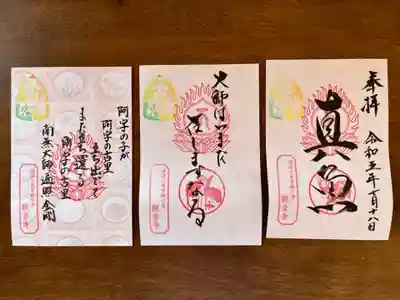 阿字の子が
阿字の古里
立ち出でて
また立ち還る
阿字の古里
南無大師遍照金剛
観音寺
大師はいまだ
おはしますなる
観音寺
奉拝 令和五年 月十八日
真魚
観音寺